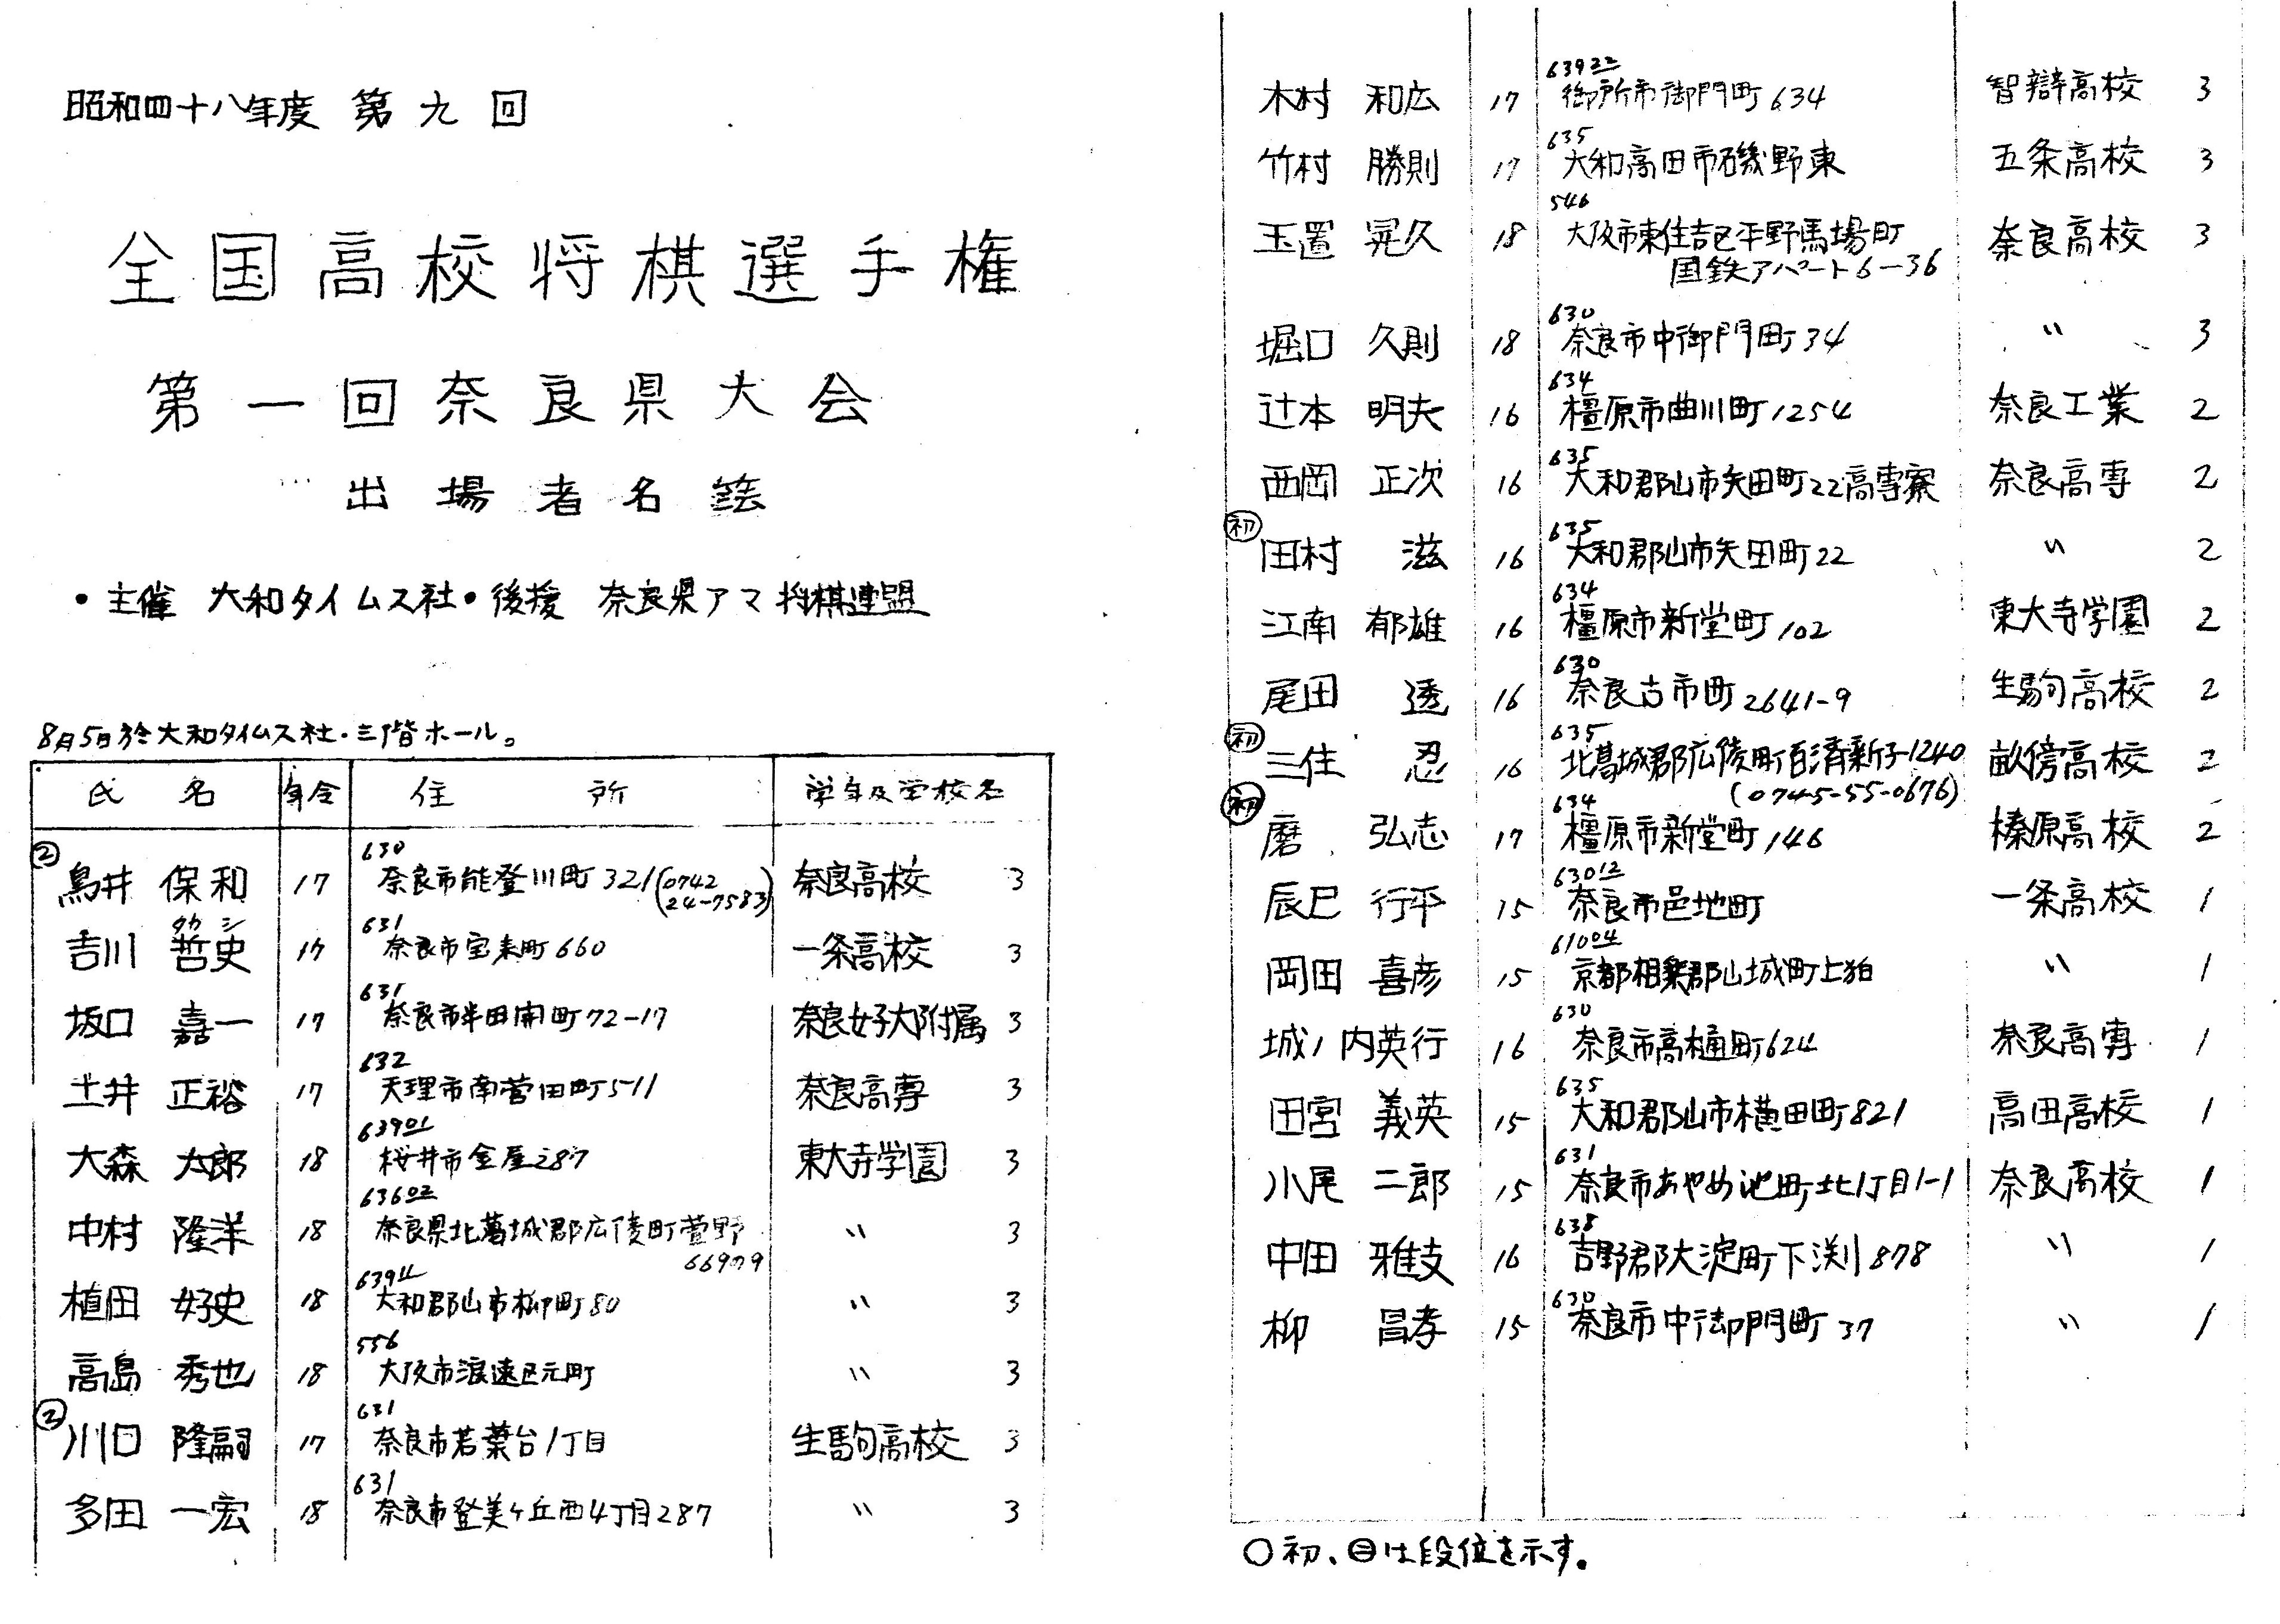 昭和四十八年度 第九回
全国高校将棋選手権
第一回奈良県大会
出場者名鑑
・主催 大和タイムス社・後援 奈良県アマ将棋連盟
8月5日於大和タイムス社・三階ホール。
氏名 年令 住所 学年及学校名
② 630
鳥井 保和 17 奈良市能登川町321(0742 24-7583) 奈良高校 3
タカシ 631
吉川 哲史 17 奈良市宝来町660 一条高校 3
631
坂口 嘉一 17 奈良市半田開町72-17 奈良女子大附属 3
632
土井 正裕 17 天理市南菅田町5-11 奈良高専 3
63901
大森 太郎 18 桜井市金屋287 東大寺学園 3
63602
中村 隆洋 18 奈良県北葛城郡広陵町萱野 〃 3
669079
63911
植田 好史 18 大和郡山市柳町80 〃 3
556
高島 秀也 18 大阪市浪速区元町 〃 3
② 631
川口 隆嗣 17 奈良市若葉台1丁目 生駒高校 3
631
多田 一宏 18 奈良市登美ヶ丘西4丁目287 〃 3
63922
木村 和広 17 御所市御門町634 智辯高校 3
635
竹村 勝則 17 大和高田市礒野東 五条高校 3
546
玉置 晃久 18 大阪市東住吉区平野馬場町 奈良高校 3
国鉄アパート6-36
630
堀口 久則 18 奈良市中御門町34 〃 3
634
辻本 明夫 16 橿原市曲川町1254 奈良工業 2
635
西岡 正次 16 大和郡山市矢田町22高専寮 奈良高専 2
初 635
田村 滋 16 大和郡山市矢田町22 〃 2
634
江南 郁雄 16 橿原市新堂町102 東大寺学園 2
630
尾田 透 16 奈良古市町2641-9 生駒高校 2
初 635
三住 忍 16 北葛城郡広陵町百済新子1240 畝傍高校 2
(0745-55-0676)
初 634
磨 弘志 17 橿原市新堂町146 榛原高校 2
63012
辰巳 行平 15 奈良市邑地町 一条高校 1
61004
岡田 喜彦 15 京都相楽郡山城町上狛 〃 1
630
城ノ内英行 16 奈良市高樋町624 奈良高専 1
635
田宮 義英 15 大和郡山市横田町821 高田高校 1
631
小尾 二郎 15 奈良市あやめ池町北1丁目1-1 奈良高校 1
638
中田 雅支 16 吉野郡大淀町下渕878 〃 1
630
柳 昌孝 15 奈良市中御門町37 〃 1
○初、㊁は段位を示す。